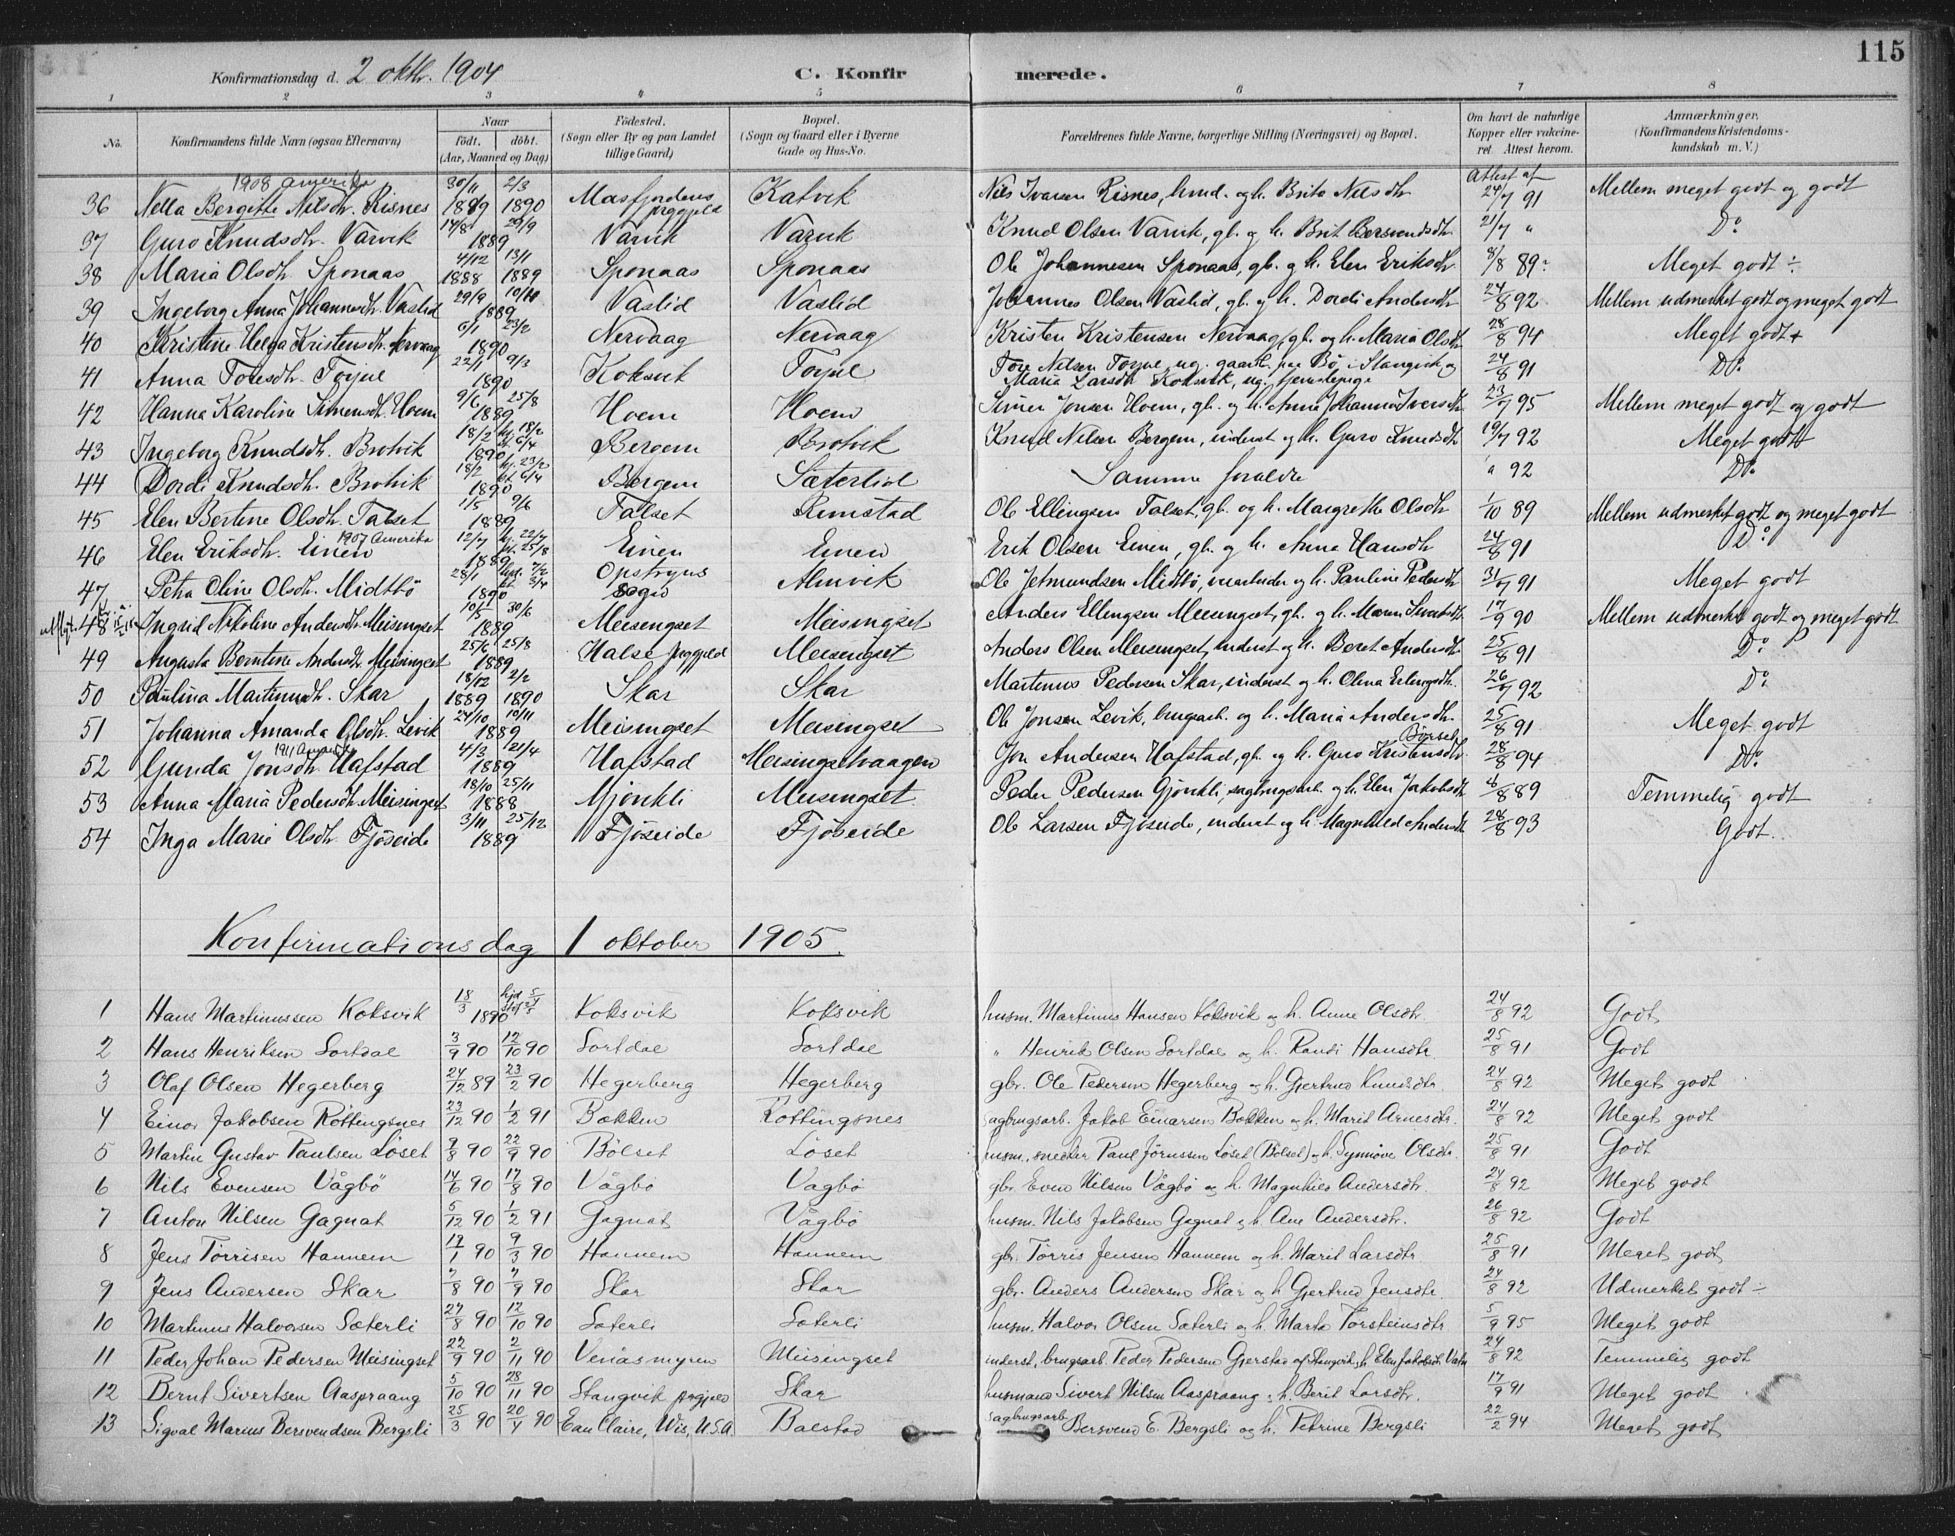 115
Konfirmationsdag d. 2 oktbr. 1904 C. Konfirmerede.
1 2 3 4 5 6 7 8
No. Konfirmandens fulde Navn (ogsaa Efternavn) Naar födt. döbt. (Aar, Maaned og Dag) Födested. (Sogn eller By og paa Landet tillige Gaard) Bopæl. (Sogn og Gaard eller i Byerne Gade og Hus-No. Forældrenes fulde Navne, borgerlige Stilling (Næringsvei) og Bopæl. Om havt de naturlige Kopper eller vakcineret. Attest herom. Anmærkninger. (Konfirmandens Kristendomskundskab m. V.)
1908 Amerika
36 Nella Bergitte Nilsdtr. Risnes 30/11 1889 2/3 1890 Masfjordens prgjeld Katvik Nils Ivarsen Risnes, hmd. og h. Brita Nilsdtr Attest af 24/7 91 Mellem meget godt og godt
37 Guro Knudsdtr. Varvik 14/8 29/9 1889 Varvik Varvik Knud Olsen Varvik, gb. og h. Brit Bersvendsdtr 21/7 " Do
38 Maria Olsdtr. Sponaas 4/12 1888 13/1 1889 Sponaas Sponaas Ole Johannesen Sponaas, gb. og h. Elen Eriksdtr 8/8 89 Meget godt ÷
39 Ingeborg Anna Johannesdtr. Vaslid 29/9 10/11 1889 Vaslid Vaslid Johannes Olsen Vaslid, gb. og h. Dordi Andersdtr 24/8 92 Mellem udmerket godt og meget godt
40 Kristine Helga Kristensdtr. Nervaag 6/1 23/2 1890 Nervaag Nervaag Kristen Kristensen Nervaag, gb. og h. Maria Olsdtr 28/8 94 Meget godt +
41 Anna Toresdtr. Torjul 22/1 9/3 1890 Koksvik Torjul Tore Nilsen Torjul, ug. gaardb. paa Bö i Stangvik og Maria Larsdtr Koksvik, ug. tjenestepige 24/8 91 Do.
42 Hanna Karoline Simensdtr. Hoem 9/6 25/8 1889 Hoem Hoem Simen Jonsen Hoem, gb. og h. Anne Johanna Iversdtr 23/7 95 Mellem meget godt og godt
43 Ingeborg Knudsdtr. Brotvik 18/2 hj. 18/2 kt. 6/4 1890 Bergem Brotvik Knud Nilsen Bergem, inderst og h. Guro Knudsdtr 19/7 92 Meget godt +
44 Dordi Knudsdtr. Brotvik 18/2 hj. 23/2 kt. 6/4 1890 Bergem Sæterlid Samme foraldre " 92 Do.
45 Elen Bertine Olsdtr. Talset 1/5 9/6 1889 Talset Rimstad Ole Ellingsen Talset, gb. og h. Margrethe Olsdtr 1/10 89 Mellem udmerket godt og meget godt
1907 Amerika
46 Elen Eriksdtr. Einen 12/7 hj. 22/7 kt. 25/8 1889 Einen Einen Erik Olsen Einen, gb. og h. Anne Hansdtr 24/8 91 Do
47 Petra Oline Olsdtr. Midtbö 28/1 hjd. 7/2 kt. 3/4 1890 Opstryns Sogn Almvik Ole Jetmundsen Midtbö, og h. Pauline Pedersdtr 31/7 91 Meget godt
48 Ingrid Nikoline Andersdtr. Meisingset 10/5 30/6 1889 Meisingset Meisingset Anders Ellingsen Meisingset, gb. og h. Maren Sivertsdtr 17/9 90 Mellem udmerket godt og meget godt
49 Augusta Berntine Andersdtr. Meisingset 25/6 25/8 1889 Halse prgjeld Meisingset Anders Olsen Meisingset, inderst og h. Beret Andersdtr 25/8 91 Do
50 Paulina Martinusdtr. Skar 18/12 1889 2/2 1890 Skar Skar Martinus Pedersen Skar, inderst og h. Olina Erlingsdtr. 26/7 92 Do.
51 Johanna Amanda Olsdtr. Levik 24/10 10/11 1889 Meisingset Meisingset Ole Jonsen Levik, brugsarb. og h. Maria Andersdtr. 25/8 91 Meget godt
1911 Amerika
52 Gunda Jonsdtr. Hafstad 4/3 21/4 1889 Hafstad Meisingsetvaagen Jon Andersen Hafstad, gb. og h. Guro Kristensdtr Börset 28/8 94 Do.
53 Anna Maria Pedersdtr. Meisingset 18/10 25/11 1888 Mjönkli Meisingset Peder Pedersen Gjönkli, sagbrugsarb. og h. Elen Jakobsdtr 8/8 89 Temmelig godt
54 Inga Marie Olsdtr. Fjöseide 3/11 25/12 1889 Fjöseide Fjöseide Ole Larsen Fjöseide, inderst og h. Magnhild Andersdtr 28/8 93 Godt.
Konfirmationsdag 1 oktober 1905.
1 Hans Martinussen Koksvik 18/3 1890 hjd 5/4 Koksvik Koksvik husm. Martinus Hansen Koksvik og h. Anne Olsdtr. 24/8 92 Godt
2 Hans Henriksen Sortdal 3/9 90 12/10 90 Sortdal Sortdal " Henrik Olsen Sortdal og h. Randi Hansdtr. 25/8 91 Godt
3 Olaf Olsen Hegerberg 24/12 89 23/2 90 Hegerberg Hegerberg gbr. Ole Pedersen Hegerberg og h. Gjertrud Knudsdtr. 24/8 92 Meget godt
4 Einar Jakobsen Röttingsnes 23/12 90 1/2 91 Bakken Röttingsnes sagbrugsarb. Jakob Einarsen Bakken og h. Marit Arnesdtr. 24/8 92 Meget godt
5 Martin Gustav Paulsen Löset 9/8 90 22/9 90 Bölset Löset husm., snedker Paul Jörnssen Löset (Bölset) og h. Synnöve Olsdtr. 25/8 91 Godt
6 Nils Evensen Vågbö 14/6 90 17/8 90 Vågbö Vågbö gbr. Even Nilsen Vågbö og h. Magnhild Andersdtr. 24/8 92 Meget godt
7 Anton Nilsen Gagnat 5/12 90 1/2 91 Gagnat Vågbö husm. Nils Jakobsen Gagnat og h. Ane Andersdtr. 26/8 92 Godt
8 Jens Törrisen Hannem 17/1 90 9/3 90 Hannem Hannem gbr. Törris Jensen Hannem og h. Marit Larsdtr 25/8 91 Meget godt
9 Jens Andersen Skar 7/8 90 7/9 90 Skar Skar gbr. Anders Andersen Skar og h. Gjertrud Jensdtr. 24/8 92 Udmerket godt ÷
10 Martinus Halvorsen Sæterli 27/8 90 12/10 90 Sæterli Sæterli husm. Halvor Olsen Sæterli og h. Marta Torsteinsdtr 5/9 95 Meget godt
11 Peder Johan Pedersen Meisingset 22/9 90 2/11 90 Veriåsmyren Meisingset inderst, brugsarb. Peder Pedersen Gjerstad af Stangvik, h. Elen Jakobsdtr 24/8 92 Temmelig godt
12 Bernt Sivertsen Aaspraang 5/10 90 28/11 90 Stangvik prgjeld Skar husmand Sivert Nilsen Aaspraang og h. Berit Larsdtr. 17/9 91 Meget godt
13 Sigval Marius Bersvendsen Bergsli 25/3 90 20/4 90 Eau Claire, Wis, U.S.A. Balstad sagbrugsarb Bersvend E. Bergsli og h. Petrine Bergsli 22/2 94 Meget godt